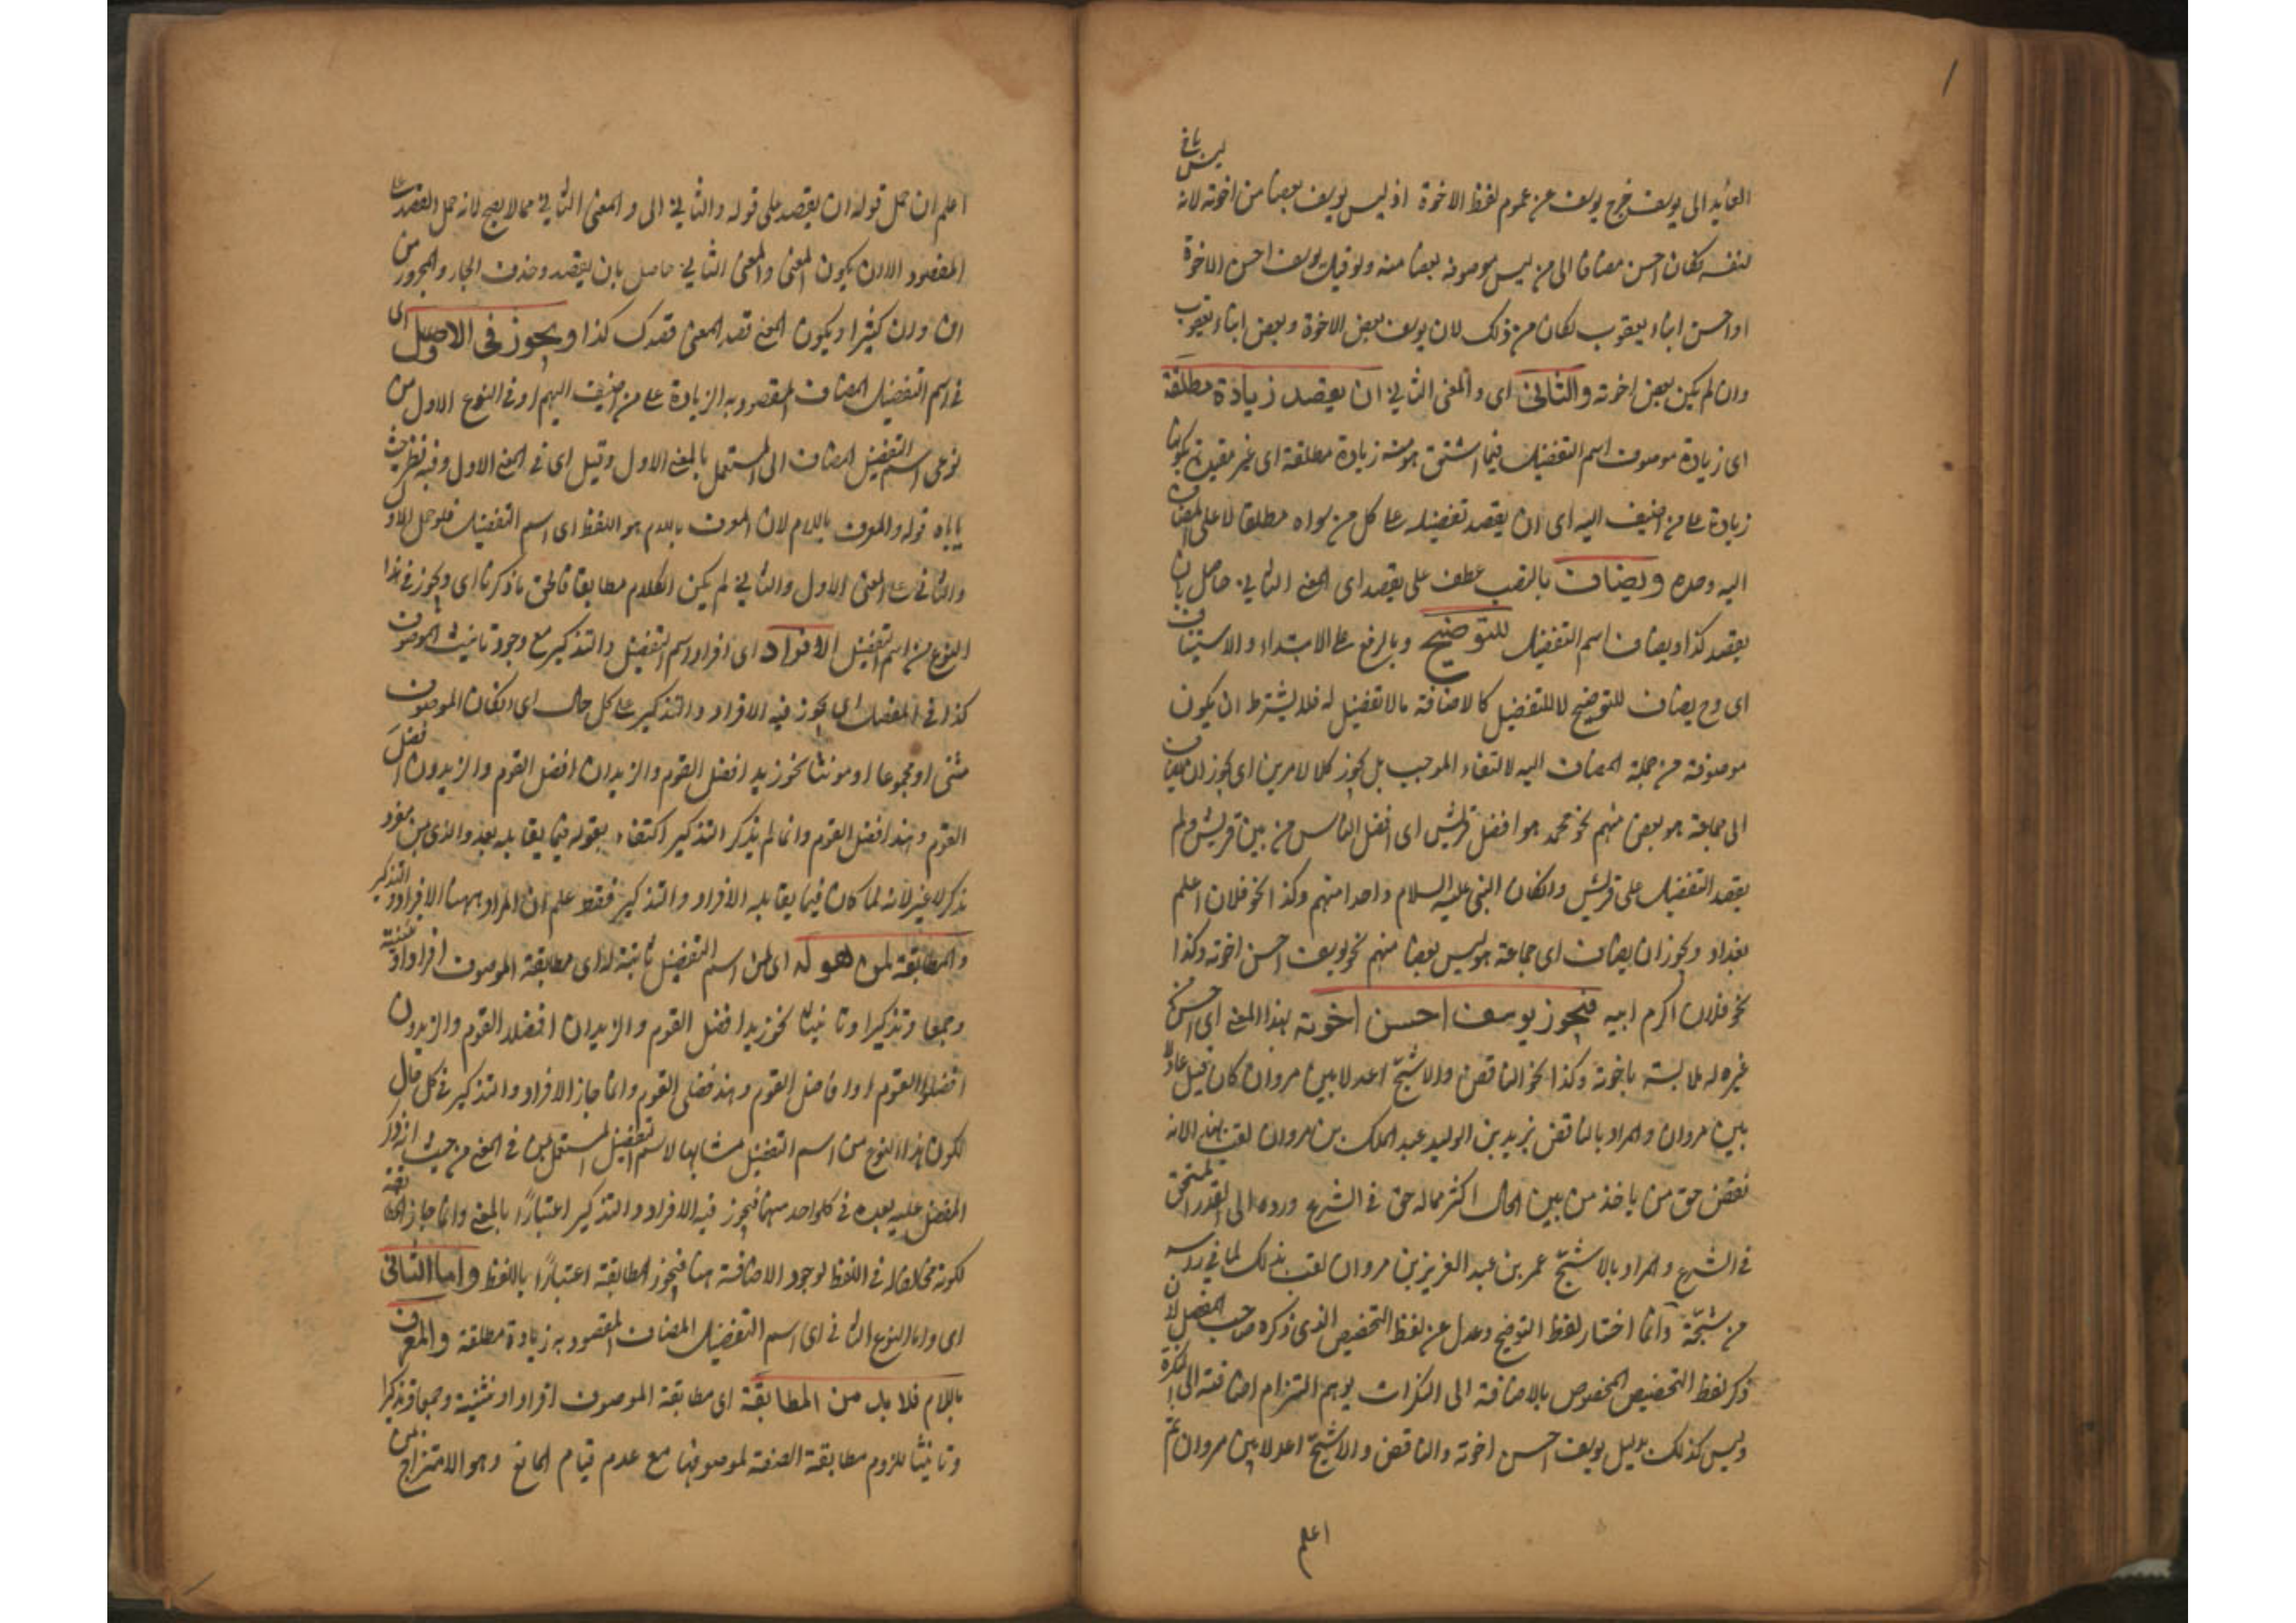 العائد الى يوسف خرج يوسف عن عموم لفظ الاخوة اذ ليس يوسف بعضا من اخوته لانه ليس بعض
لنفسه فكان احسن مضافا الى من ليس موصوفه بعضا منه ولو قيل يوسف احسن الاخوة
او احسن ابناء يعقوب لكان من ذلك لان يوسف بعض الاخوة وبعض ابناء يعقوب
وان لم يكن بعض اخوته والثانى اى والمعنى الثانى ان يقصد زيادة مطلقة
اى زيادة موصوف اسم التفضيل فيما اشتق هو منه زيادة مطلقة اى غير مقيدة بكونها
زيادة على من اضيف اليه اى ان يقصد تفضيله على كل من سواه مطلقا لا على المضاف
اليه وحده ويضاف بالنصب عطف على يقصد اى المعنى الثانى حاصل بان
يقصد كذا ويضاف اسم التفضيل للتوضيح وبالرفع على الابتداء والاستيناف
اى وح يضاف للتوضيح لا للتفضيل كالاضافة مالا تفضيل له فلا يشترط ان يكون
موصوفه من جملة المضاف اليه لانتفاء الموجب بل يجوز كلا الامرين اى يجوز ان يضاف
الى جماعة هو بعض منهم نحو محمد هو افضل قريش اى افضل الناس من بين قريش ولم
يقصد التفضيل على قريش وان كان النبى عليه السلام واحدا منهم وكذا نحو فلان اعلم
بغداد ويجوز ان يضاف اى جماعة هو ليس بعضا منهم نحو يوسف احسن اخوته وكذا
نحو فلان اكرم ابيه فيجوز يوسف احسن اخوته بهذا المعنى اى احسن من
غيره له ملابسة باخوته وكذا نحو الناقص والاشج اعدلا بنى مروان كان قيل عادلا
بنى مروان والمراد بالناقص يزيد بن الوليد عبد الملك بن مروان لقب به لانه
نقص حق من ياخذ من بيت المال اكثر مما له حق فى الشرع ورده الى القدر المستحق
فى الشرع والمراد بالاشج عمر بن عبد العزيز بن مروان لقب بذلك لما فى راسه
من شجة وانما اختار لفظ التوضيح وعدل عن لفظ التخصيص الذى ذكره صاحب المفصل لان
ذكر لفظ التخصيص المخصوص بالاضافة الى النكرات يوهم التزام اضافته الى النكرة
وليس كذلك بدليل يوسف احسن اخوته والناقص والاشج اعدلا بنى مروان ثم
اعلم
اعلم ان حمل قوله ان يقصد على قوله والثانى اى والمعنى الثانى مما لا يصح لانه حمل القصد على
المقصود الا ان يكون المعنى والمعنى الثانى حاصل بان يقصد وحذف الجار والمجرور من
ان وان كثيرا ويكون المعنى قصد المعنى قصدك كذا ويجوز فى الاول اى
فى اسم التفضيل المضاف المقصود به الزيادة على من اضيف اليهم او فى النوع الاول من
نوعى اسم التفضيل المضاف الى المستعمل بالمعنى الاول وقيل اى فى المعنى الاول وفيه نظر حيث
ياباه قوله والمعرف باللام لان المعرف باللام هو اللفظ اى اسم التفضيل فلو حمل الاول
والثانى على المعنى الاول والثانى لم يكن الكلام مطابقا فالحق ما ذكرنا اى ويجوز فى هذا
النوع من اسم التفضيل الافراد اى افراد اسم التفضيل والتذكير مع وجود تانيث الموصوف
كذا فى المفصل اى يجوز فيه الافراد والتذكير على كل حال اى وان كان الموصوف
مثنى او مجموعا او مونثا نحو زيد افضل القوم والزيدان افضل القوم والزيدون افضل
القوم وهند افضل القوم وانما لم يذكر التذكير اكتفاء بقوله فيما يقابله بعد والذى بمن مفرد
مذكر لا غير لانه لما كان فيما يقابله الافراد والتذكير فقط علم ان المراد ههنا الافراد والتذكير
والمطابقة لمن هو له اى لمن اسم التفضيل ثابتة له اى مطابقة الموصوف افرادا وتثنية
وجمعا وتذكيرا وتانيثا نحو زيد افضل القوم والزيدان افضلا القوم والزيدون
افضلوا القوم او افاضل القوم وهند فضلى القوم وانما جاز الافراد والتذكير فى كل حال
لكون هذا النوع من اسم التفضيل مشابها لاسم التفضيل المستعمل بمن فى المعنى من حيث انه ذكر
المفضل عليه بعده فى كل واحد منهما فيجوز فيه الافراد والتذكير اعتبارا بالمعنى وانما جاز المطابقة
لكونه مخالفا له فى اللفظ لوجود الاضافة هنا فيجوز المطابقة اعتبارا باللفظ واما الثانى
اى واما النوع الثانى اى اسم التفضيل المضاف المقصود به زيادة مطلقة والمعرف
باللام فلا بد من المطابقة اى مطابقة الموصوف افرادا وتثنية وجمعا وتذكيرا
وتانيثا للزوم مطابقة الصفة لموصوفها مع عدم قيام المانع وهو الامتزاج بمن